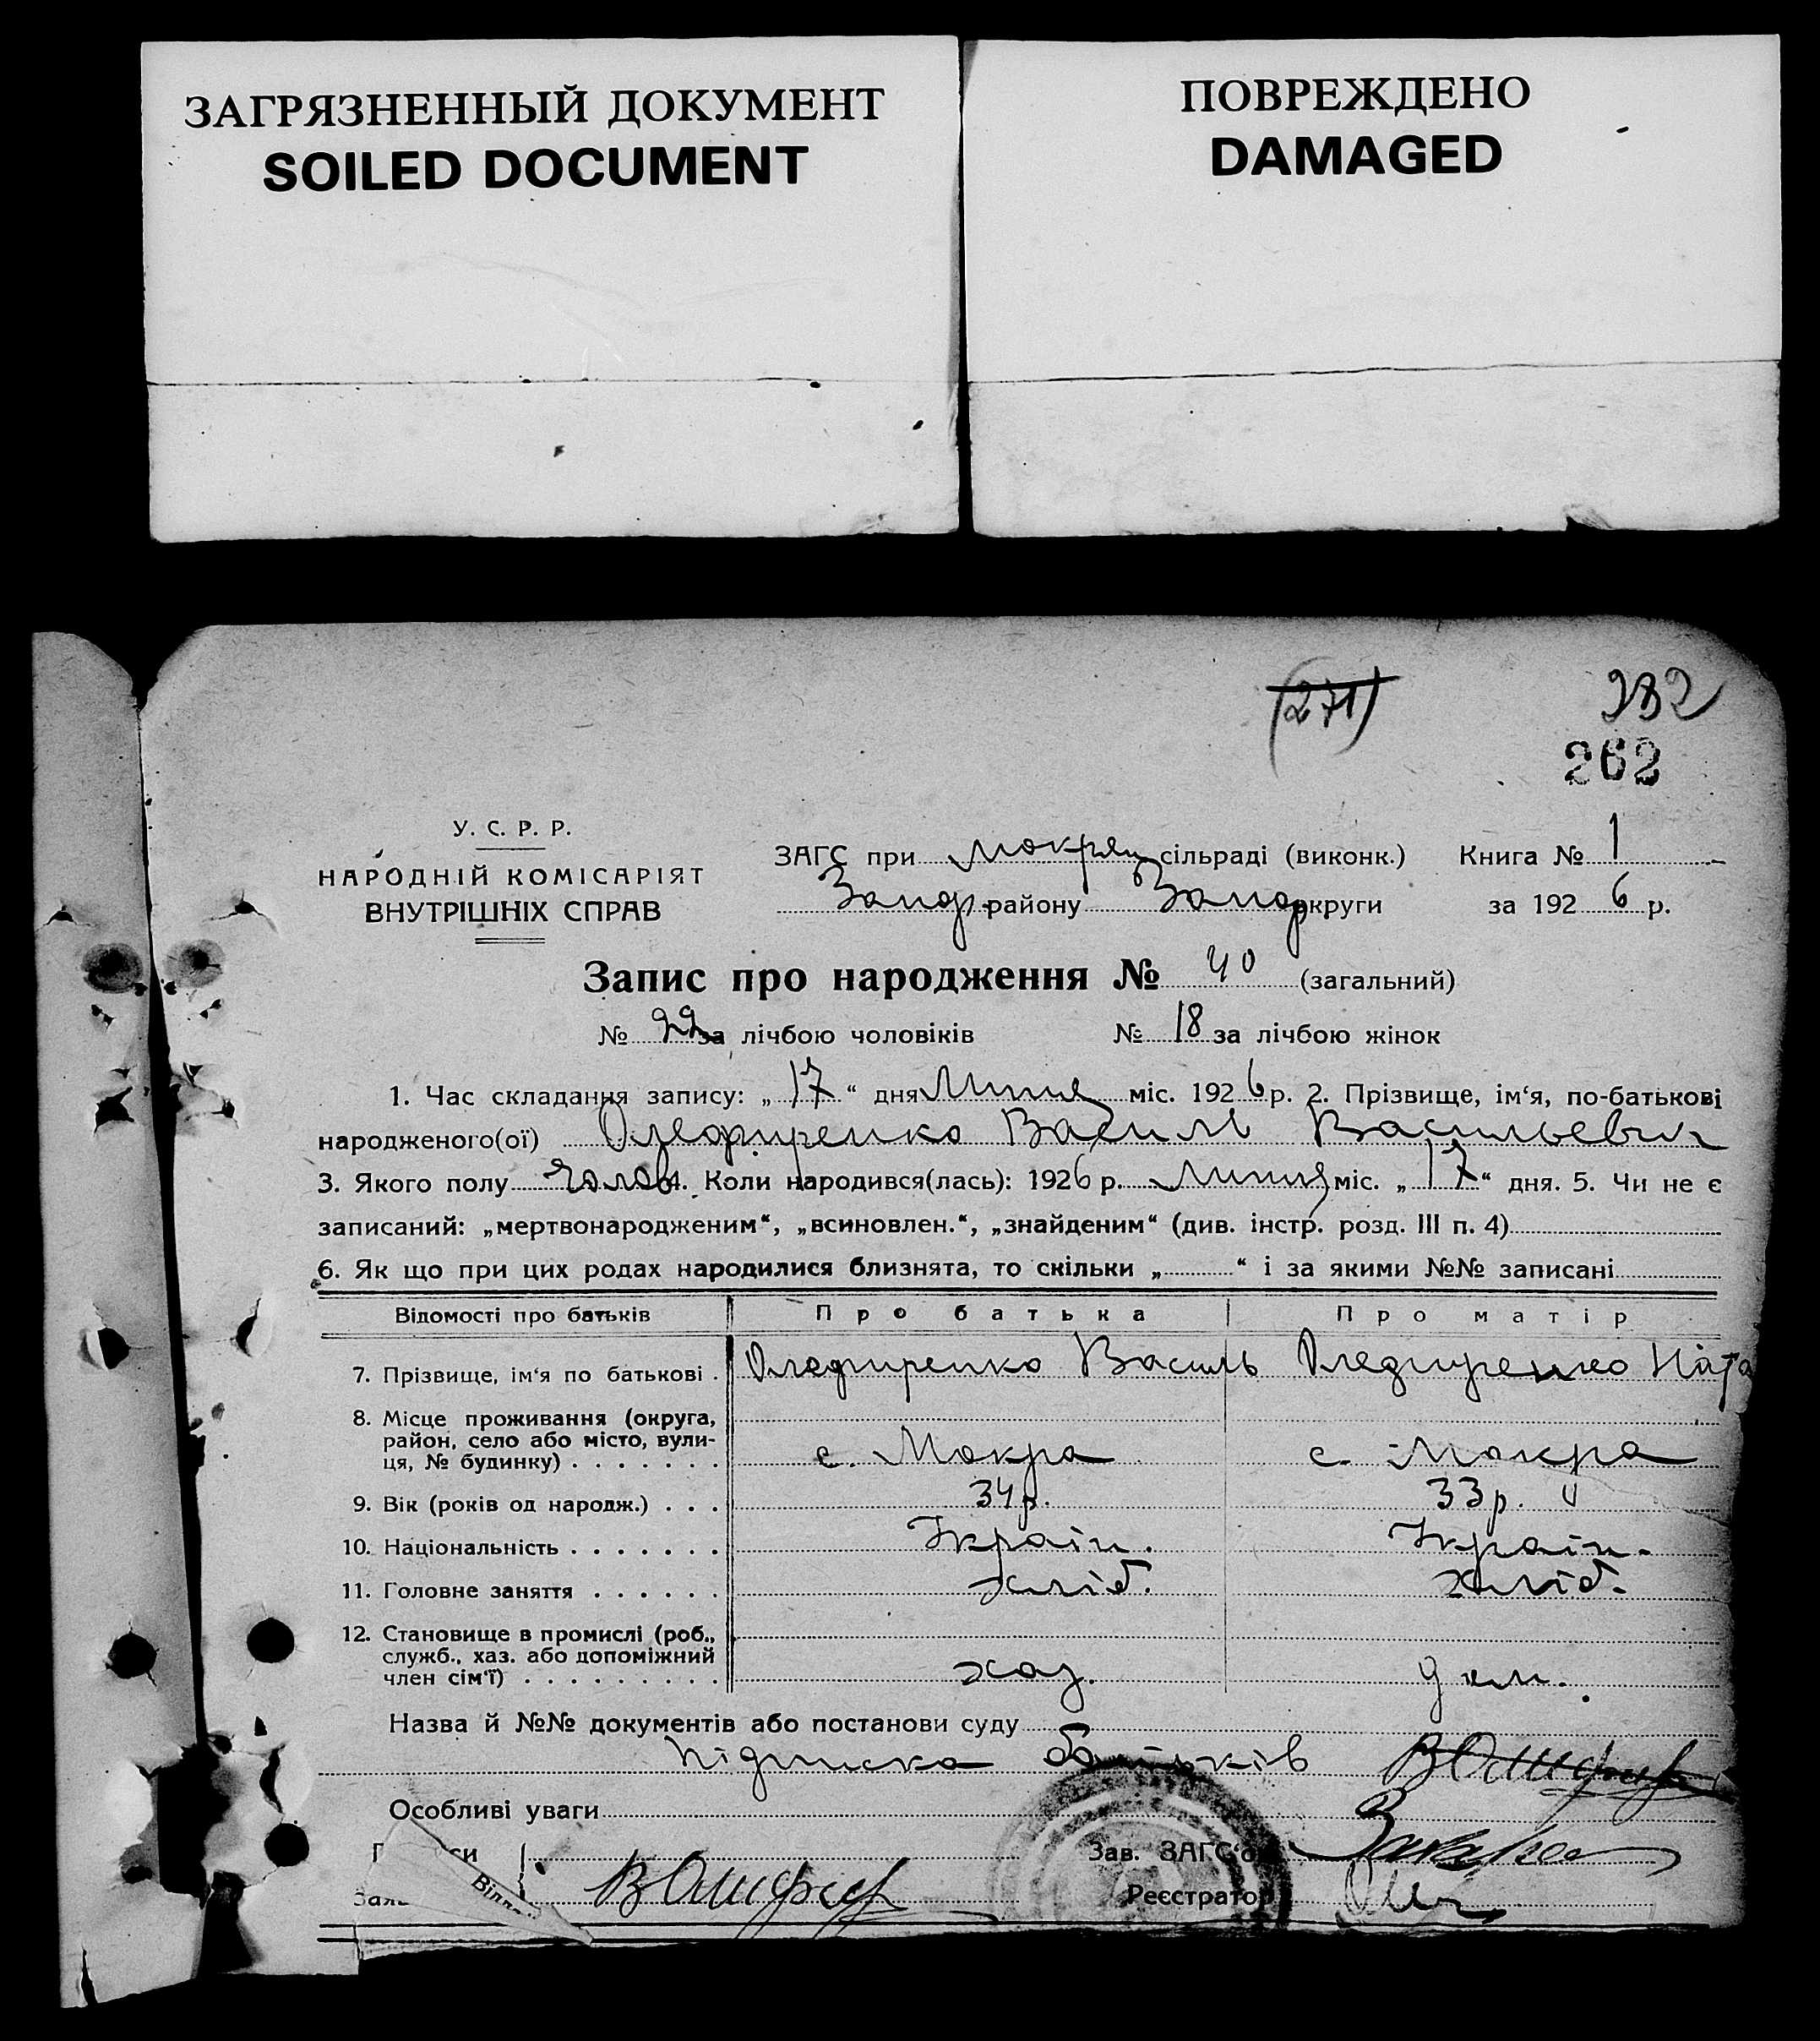 ЗАГРЯЗНЕННЫЙ ДОКУМЕНТ
SOILED DOCUMENT
ПОВРЕЖДЕНО
DAMAGED
(271)
262
У. С. Р. Р.
НАРОДНІЙ КОМІСАРІЯТ
ВНУТРІШНІХ СПРАВ
ЗАГС при Мокрян сільраді (виконк.) Книга № 1
Запор. району Запор округи за 1926 р.
Запис про народження № 40 (загальний)
№ 22 за лічбою чоловіків № 18 за лічбою жінок
1. Час складання запису: „17“ дня Липня міс. 1926 р. 2. Прізвище, ім‘я, по-батькові
народженого(ої) Олефиренко Василь Васильевич
3. Якого полу чолов. 4. Коли народився(лась): 1926 р. Липня міс. „17“ дня. 5. Чи не є
записаний: „мертвонародженим“, „всиновлен.“, „знайденим“ (див. інстр. розд. III п. 4)
6. Як що при цих родах народилися близнята, то скільки „ “ і за якими №№ записані
Відомості про батьків Про батька Про матір
7. Прізвище, ім‘я по батькові . Олефиренко Василь Олефиренко Ната
8. Місце проживання (округа,
район, село або місто, вули-
ця, № будинку) . . . . . . . с. Мокра с. Мокра
9. Вік (років од народж.) . . . 34 р. 33 р.
10. Національність . . . . . . . Україн. Україн.
11. Головне заняття . . . . . . хліб. хліб.
12. Становище в промислі (роб.,
служб., хаз. або допоміжний
член сім‘ї) . . . . . . . . . хаз. д чл.
Назва й №№ документів або постанови суду
підписка батьків
Особливі уваги
Зав. ЗАГС‘о
Реєстратор